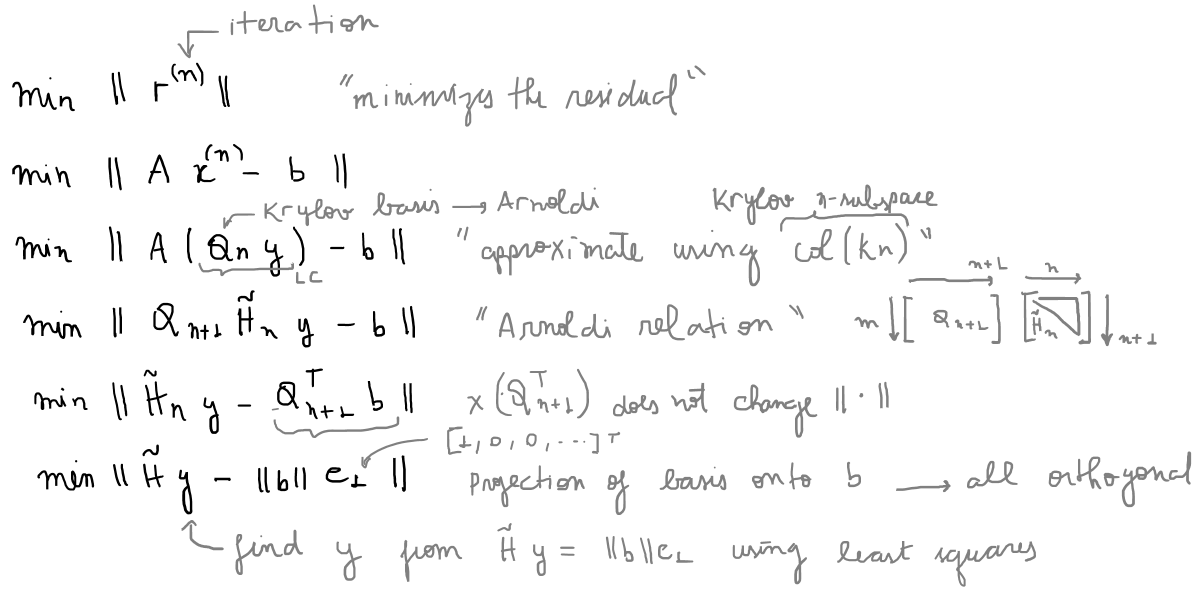 iteration
min ‖ r⁽ⁿ⁾ ‖ "minimizes the residual"
min ‖ A x⁽ⁿ⁾ - b ‖
Krylov basis → Arnoldi Krylov n-subspace
min ‖ A ( Qn y ) - b ‖ "approximate using col(kn)"
LC
n+1 n
min ‖ Qn+1 H̃n y - b ‖ "Arnoldi relation" m ↓ [ Qn+1 ] [ H̃n ] ↓ n+1
min ‖ H̃n y - Qᵀn+1 b ‖ x (Qᵀn+1) does not change ‖ · ‖
[1, 0, 0, ...]ᵀ
min ‖ H̃ y - ‖b‖ e1 ‖ Projection of basis onto b → all orthogonal
find y from H̃ y = ‖b‖e1 using least squares